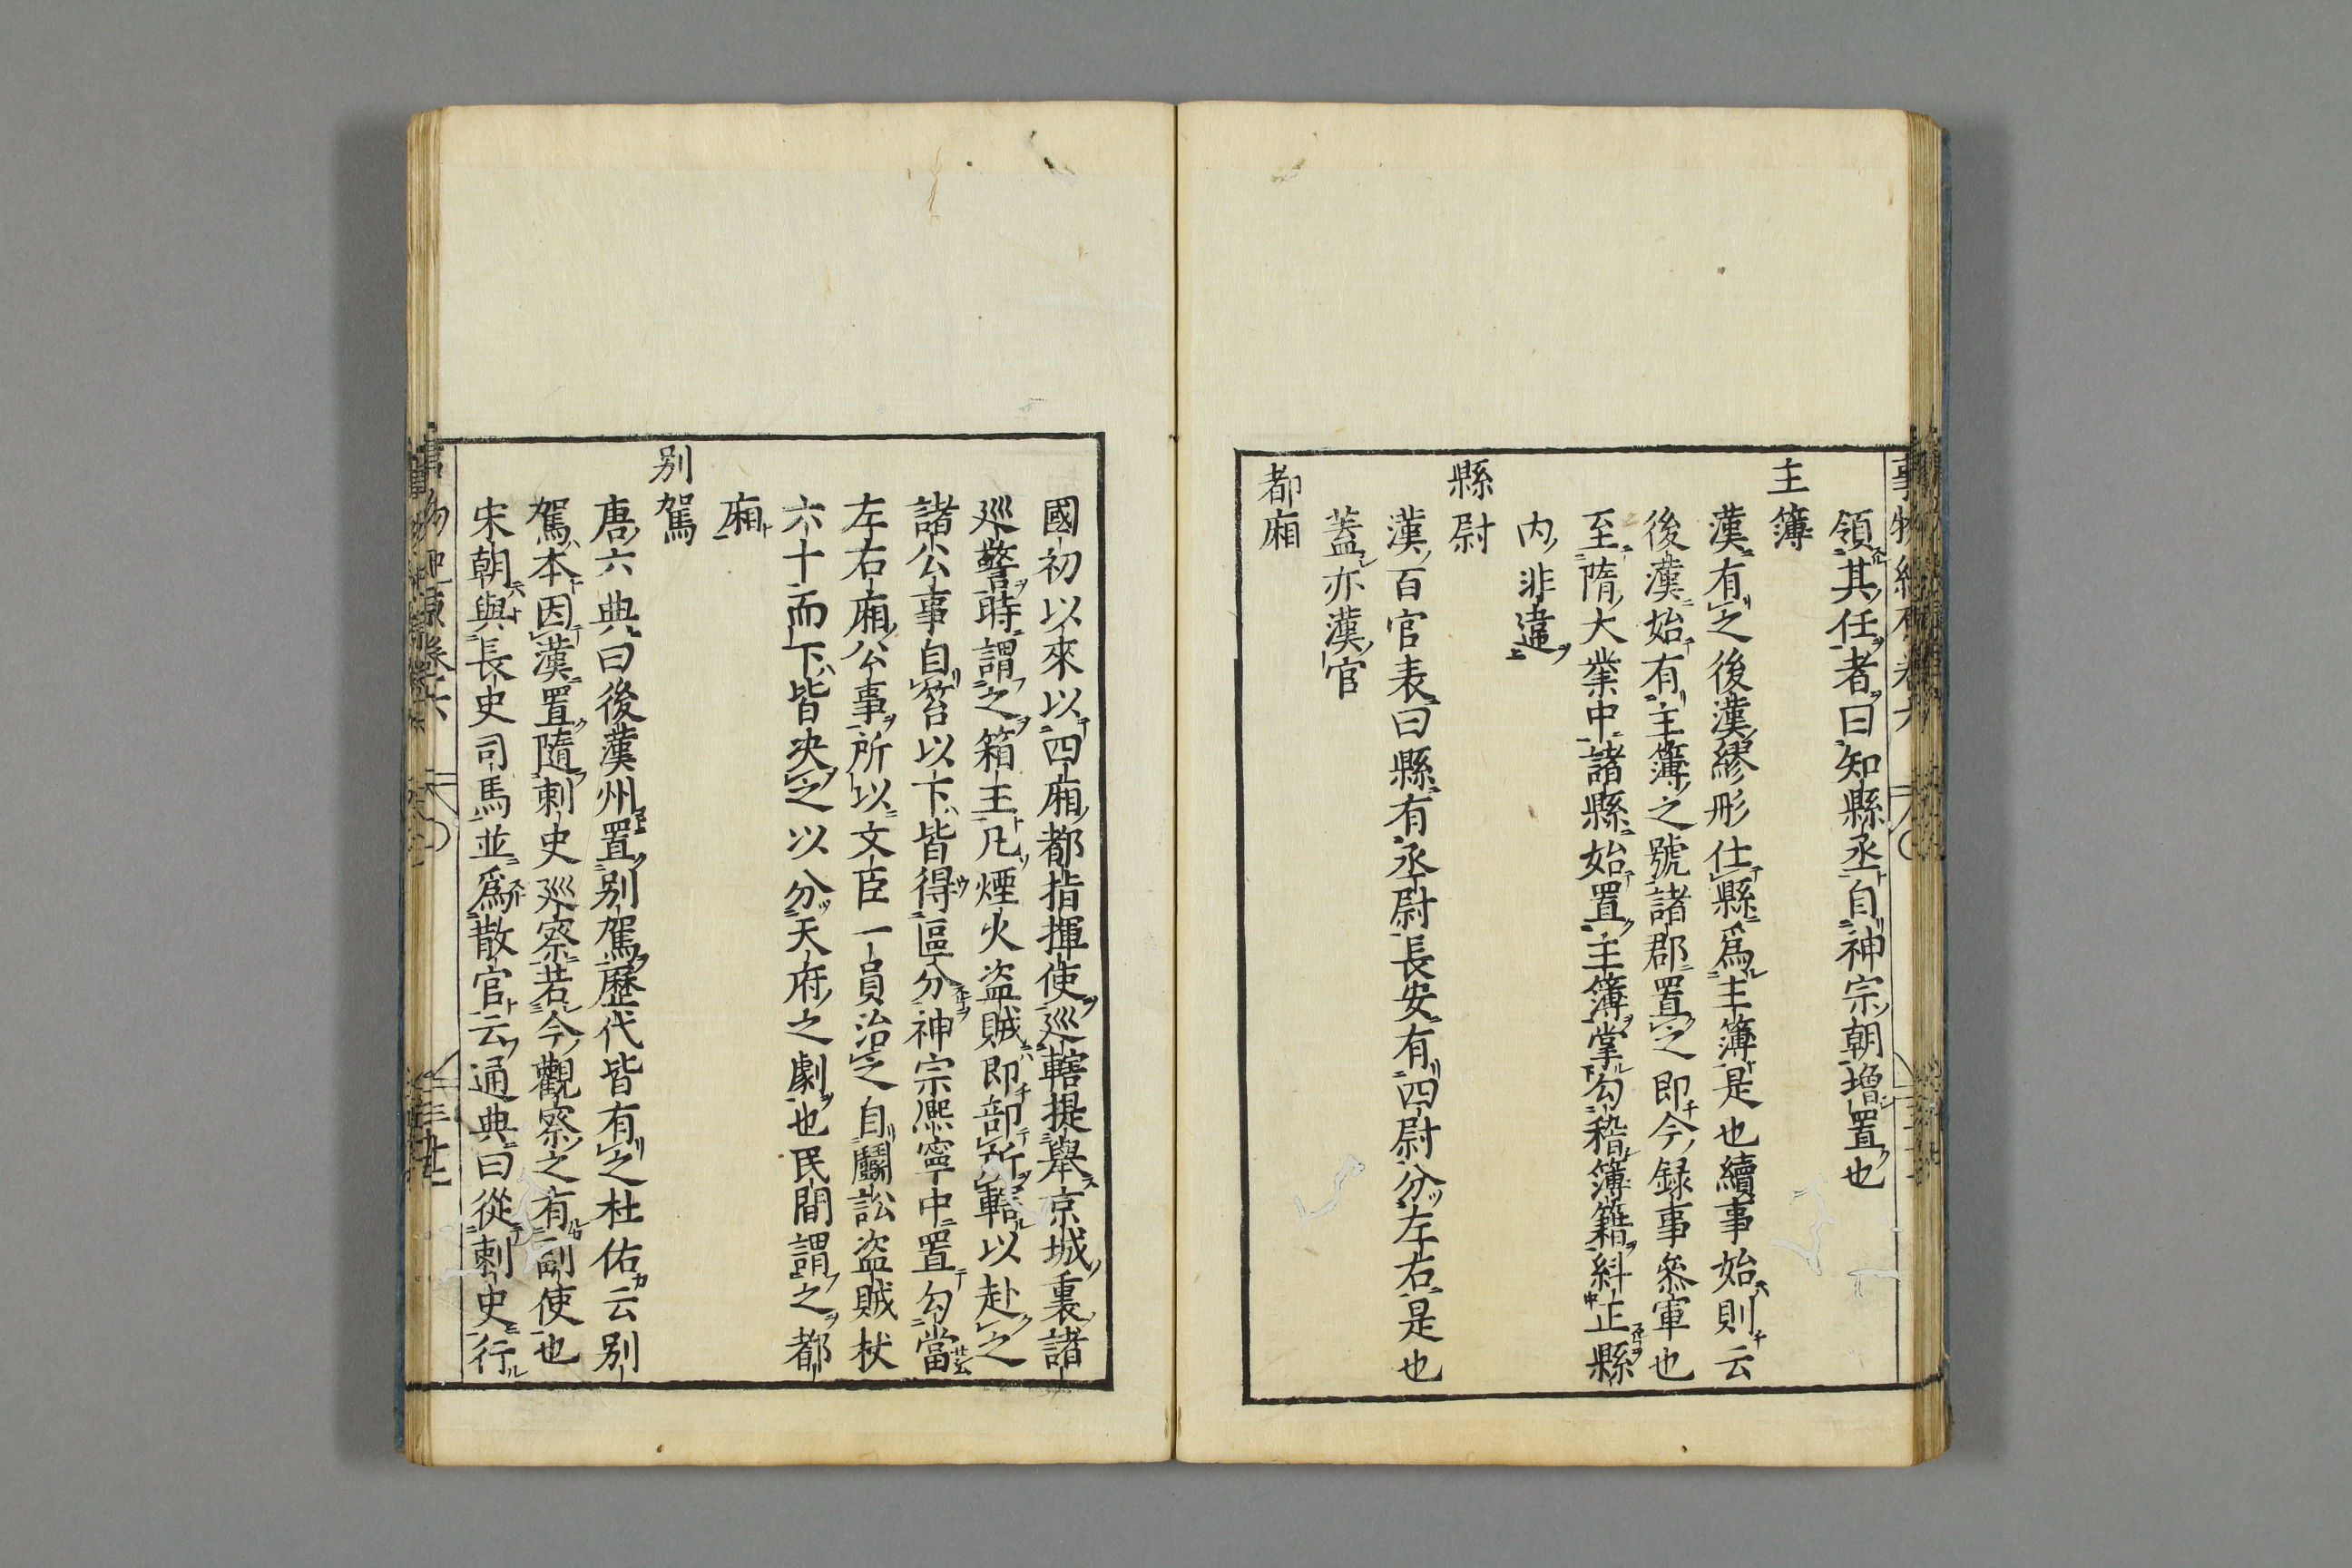 領其任者曰知縣丞自神宗朝增置也
主簿
漢有之後漢繆形仕縣爲主簿是也續事始則云
後漢始有主簿之號諸郡置之即今録事叅軍也
至隋大業中諸縣始置主簿掌勾稽簿籍糾正縣
内非違
縣尉
漢百官表曰縣有丞尉長安有四尉分左右是也
蓋亦漢官
都廂
國初以來以四廂都指揮使巡轄提舉京城裏諸
巡警時謂之箱主凡煙火盗賊即部所轄以赴之
諸公事自笞以下皆得區分神宗熈寧中置勾當
左右廂公事所以文臣一員治之自鬭訟盗賊杖
六十而下皆决之以分天府之劇也民間謂之都
廂
别駕
唐六典曰後漢州置别駕歷代皆有之杜佑云别
駕本因漢置隨刺史巡察若今觀察之有副使也
宋朝與長史司馬並爲散官云通典曰從刺史行